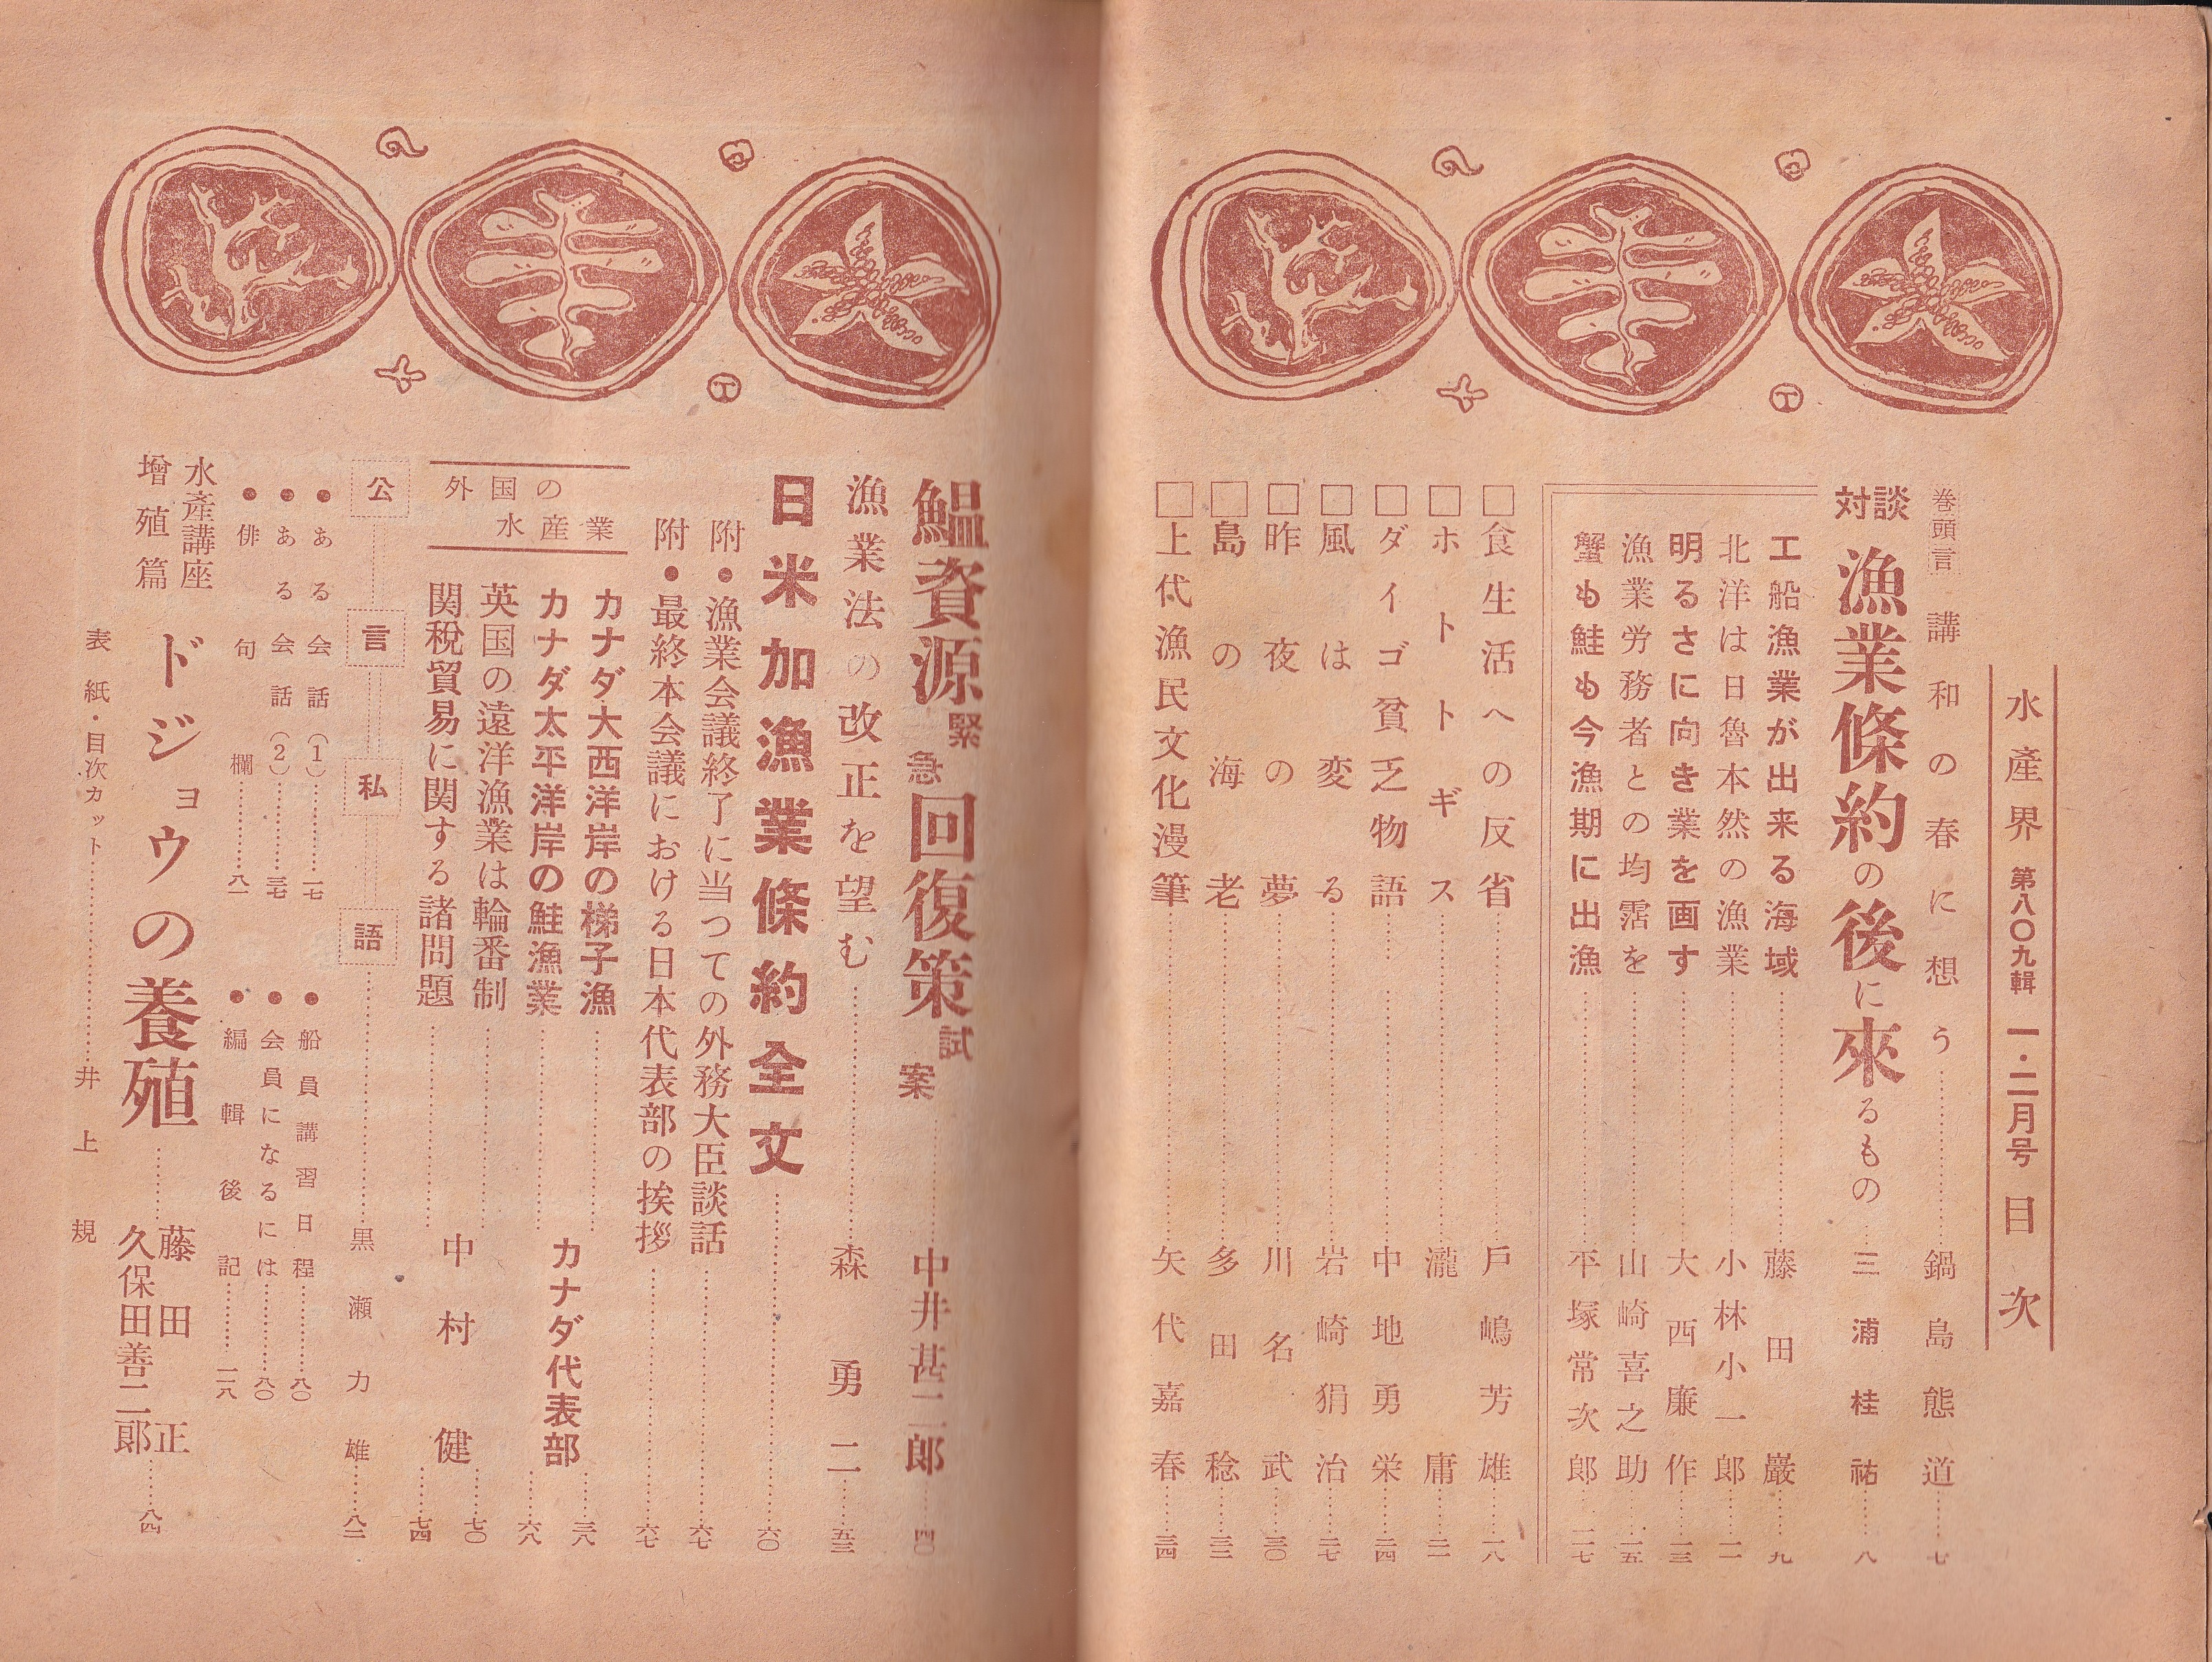 水產界 第八〇九輯 一・二月号 目次
巻頭言 講和の春に想う……鍋島態道……七
対談 漁業條約の後に來るもの……三浦桂祐……八
工船漁業が出来る海域……藤田巖……九
北洋は日魯本然の漁業……小林小一郎……一一
明るさに向き業を画す……大西廉作……一三
漁業労務者との均霑を……山崎喜之助……一五
蟹も鮭も今漁期に出漁……平塚常次郎……一七
□食生活への反省……戸嶋芳雄……一八
□ホトトギス……瀧庸……二一
□ダイゴ貧乏物語……中地勇栄……二四
□風は変る……岩崎狷治……二七
□昨夜の夢……川名武……三〇
□島の海老……多田稔……三二
□上代漁民文化漫筆……矢代嘉春……三四
鰮資源緊急回復策試案……中井甚二郎……四〇
漁業法の改正を望む……森勇二……五三
日米加漁業條約全文……六〇
附・漁業会議終了に当つての外務大臣談話……六七
附・最終本会議における日本代表部の挨拶……六七
外国の水産業
カナダ大西洋岸の梯子漁……三八
カナダ太平洋岸の鮭漁業……六八
カナダ代表部
英国の遠洋漁業は輪番制……七〇
関税貿易に関する諸問題……七四
中村健
公言私語……黒瀬力雄……八二
●ある会話（1）……一七
●ある会話（2）……三七
●俳句欄……八一
●船員講習日程……八〇
●会員になるには……八〇
●編輯後記……一一八
水產講座
增殖篇
ドジョウの養殖……藤田正
久保田善二郎……八四
表紙・目次カット……井上規